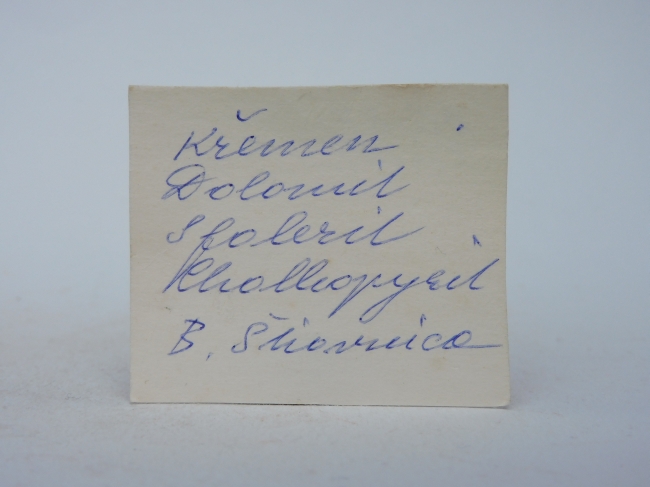 Křemen
Dolomit
Sfalerit
Khalkopyrit
B. Štiavnica